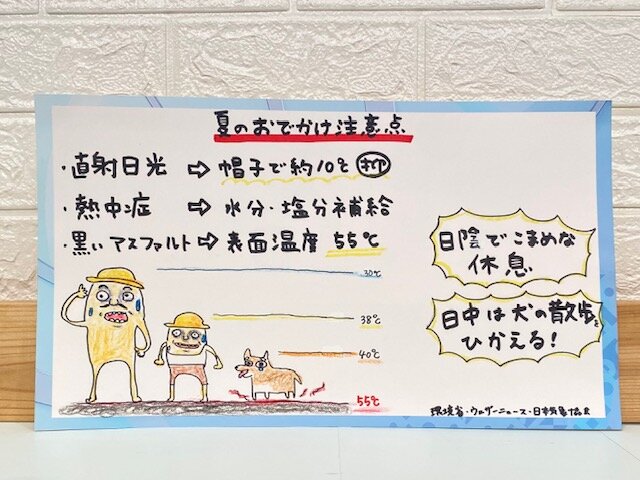 夏のおでかけ注意点
・直射日光 ⇨ 帽子で約10℃ 抑
・熱中症 ⇨ 水分・塩分補給
・黒いアスファルト ⇨ 表面温度 55℃
日陰でこまめな
休息
日中は犬の散歩を
ひかえる!
30℃
38℃
40℃
55℃
環境省・ウェザーニュース・日本気象協会